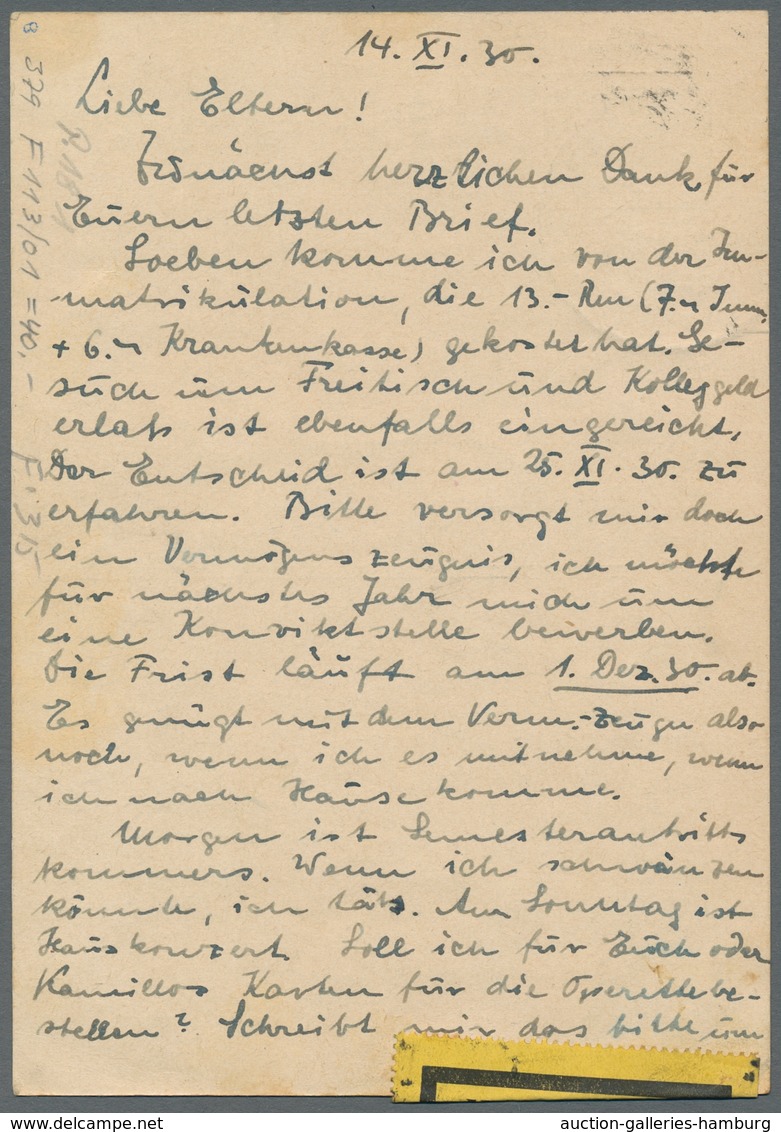 14. XI. 30.
Liebe Eltern!
Zunächst herzlichen Dank für
Euern letzten Brief.
Soeben komme ich von der Im-
matrikulation, die 13.- Rm (7.- Imm.
+ 6.- Krankenkasse) gekostet hat. Ge-
such um Freitisch und Kolleggeld
erlaß ist ebenfalls eingereicht.
Der Entscheid ist am 25. XI. 30. zu
erfahren. Bitte versorgt mir doch
ein Vermögenszeugnis, ich möchte
für nächstes Jahr mich um
eine Konviktstelle bewerben.
Die Frist läuft am 1. Dez. 30. ab.
Es genügt mit dem Verm.-zeugn also
noch, wenn ich es mitnehme, wenn
ich nach Hause komme.
Morgen ist Semesterantritts
kommers. Wenn ich schwänzen
könnte, ich täts. Am Sonntag ist
Hauskonzert. Soll ich für Euch oder
Kamillos Karten für die Operette be-
stellen? Schreibt mir das bitte um
8 379 F 113/01 = 40,-
P 18 I
F. 315
auction-galleries-hamburg